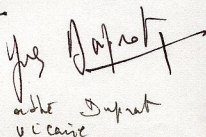 Yves Duprat
André Duprat
vicaire